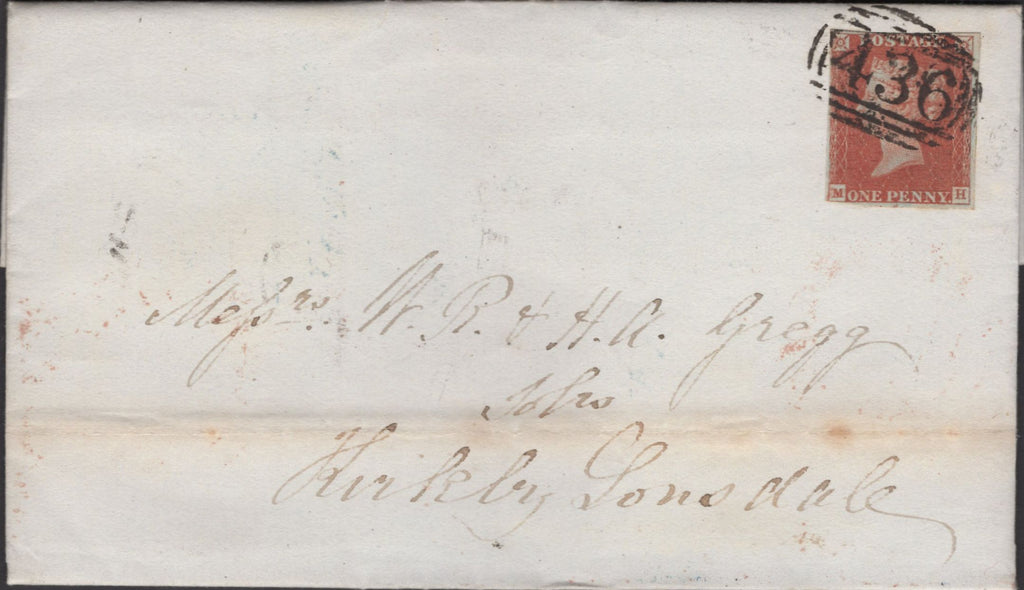 POSTAGE
436
M ONE PENNY. H
Messrs. W. R. & H. A. Gregg
Solrs
Kirkby Lonsdale